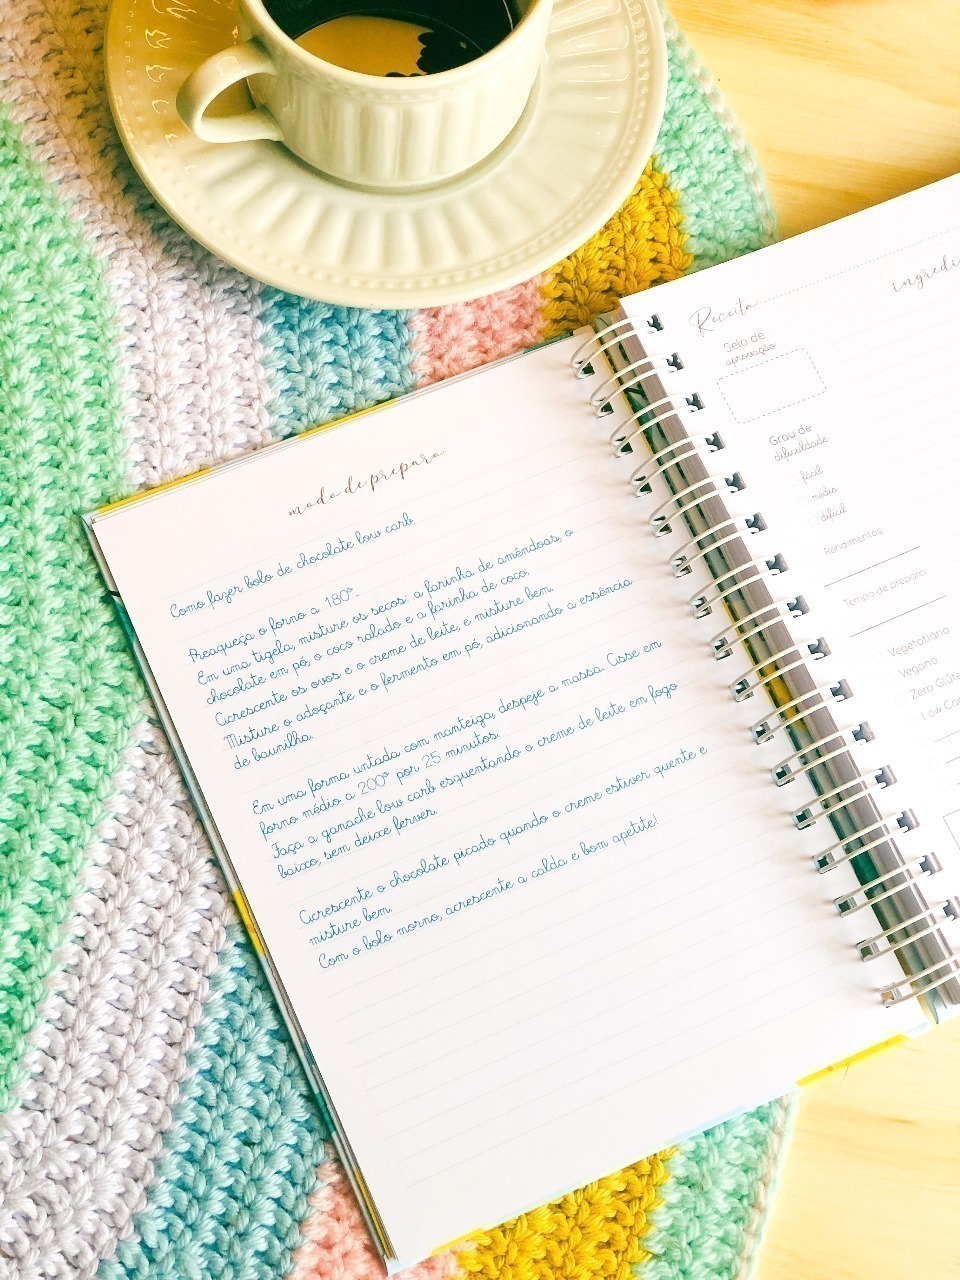 modo de preparo
Como fazer bolo de chocolate low carb
Preaqueça o forno a 180º.
Em uma tigela, misture os secos: a farinha de amêndoas, o
chocolate em pó, o coco ralado e a farinha de coco.
Acrescente os ovos e o creme de leite, e misture bem.
Misture o adoçante e o fermento em pó, adicionando a essência
de baunilha.
Em uma forma untada com manteiga, despeje a massa. Asse em
forno médio a 200º por 25 minutos.
Faça a ganache low carb esquentando o creme de leite em fogo
baixo, sem deixe ferver.
Acrescente o chocolate picado quando o creme estiver quente e
misture bem.
Com o bolo morno, acrescente a calda e bom apetite!
Receita
ingredi
Selo de
aprovação
Grau de
dificuldade
fácil
médio
difícil
Rendimentos:
Tempo de preparo:
Vegetariana
Vegano
Zero Glúte
Low Car